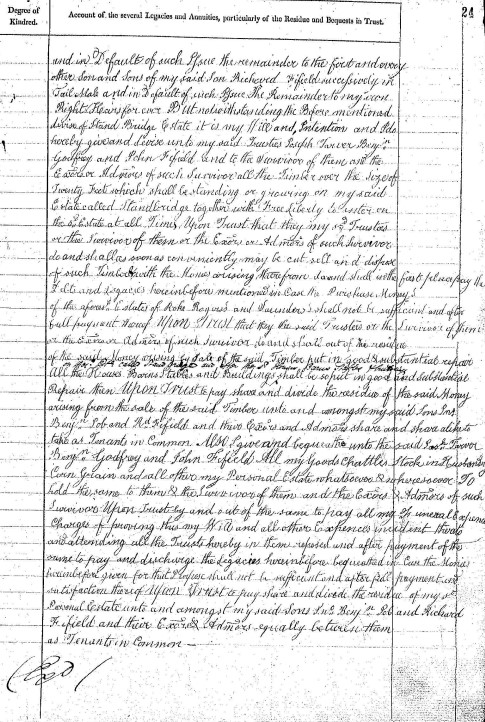 Degree of Kindred.
Account of the several Legacies and Annuities, particularly of the Residue and Bequests in Trust.
24
and in Default of such Issue the remainder to the first and every
other Son and Sons of my said Son Richard Fifield successively in
Tail Male and in Default of such Issue The Remainder to my own
Right Heirs for ever But notwithstanding the Before mentioned
devise of Stand Bridge Estate it is my Will and Intention and I do
hereby give and devise unto my said Trustees Joseph Benjn
Godfrey and John Fifield and to the Survivor of them and the
Exors or Admors of such Survivor all the Timber over the Size of
Twenty Feet which shall be standing or growing on my said
Estate called Standbridge together with Free Liberty to enter on
the sd Estate at all Times Upon Trust that they my sd Trustees
or the Survivor of them or the Exors or Admors of such Survivor
do and shall as soon as conveniently may be cut sell and dispose
of such Timber & with the Monies arising therefrom do and shall in the first place pay the
Debts and Legacies hereinbefore mentioned in Case the Purchase Money
of the aforesd Estates of Roke Rogers's and Saunders's shall not be sufficient and after
full payment thereof Upon Trust that they the said Trustees or the Survivor of them
or the Exors or Admors of such Survivor do and shall out of the residue
of the said Money arising by Sale of the said Timber put in good & substantial repair
All the Houses Barns Stables and Buildings shall be kept in good and Substantial
Repair then Upon Trust to pay share and divide the residue of the said Money
arising from the sale of the said Timber unto and amongst my said Sons Jno
Benjn Job and Rd Fifield and their Exors and Admors share and share alike to
take as Tenants in Common Also I give and bequeath unto the said
Benjn Godfrey and John Fifield All my Goods Chattles Stock in Husbandry
Corn Grain and all other my Personal Estate whatsoever & wheresoever To
hold the same to them & the Survivor of them and the Exors & Admors of such
Survivor Upon Trust by and out of the same to pay all my Funeral Expences
Charge of proving this my Will and all other Expences incident thereto
and attending all the Trusts hereby in them reposed and after payment of the
same to pay and discharge the Legacies hereinbefore bequeathed in Case the Monies
hereinbefore given for that Purpose shall not be sufficient and after full payment and
satisfaction thereof Upon Trust to pay share and divide the residue of my sd
Personal Estate unto and amongst my said Sons Jno Benjn Job and Richard
Fifield and their Exors & Admors equally between them
as Tenants in Common